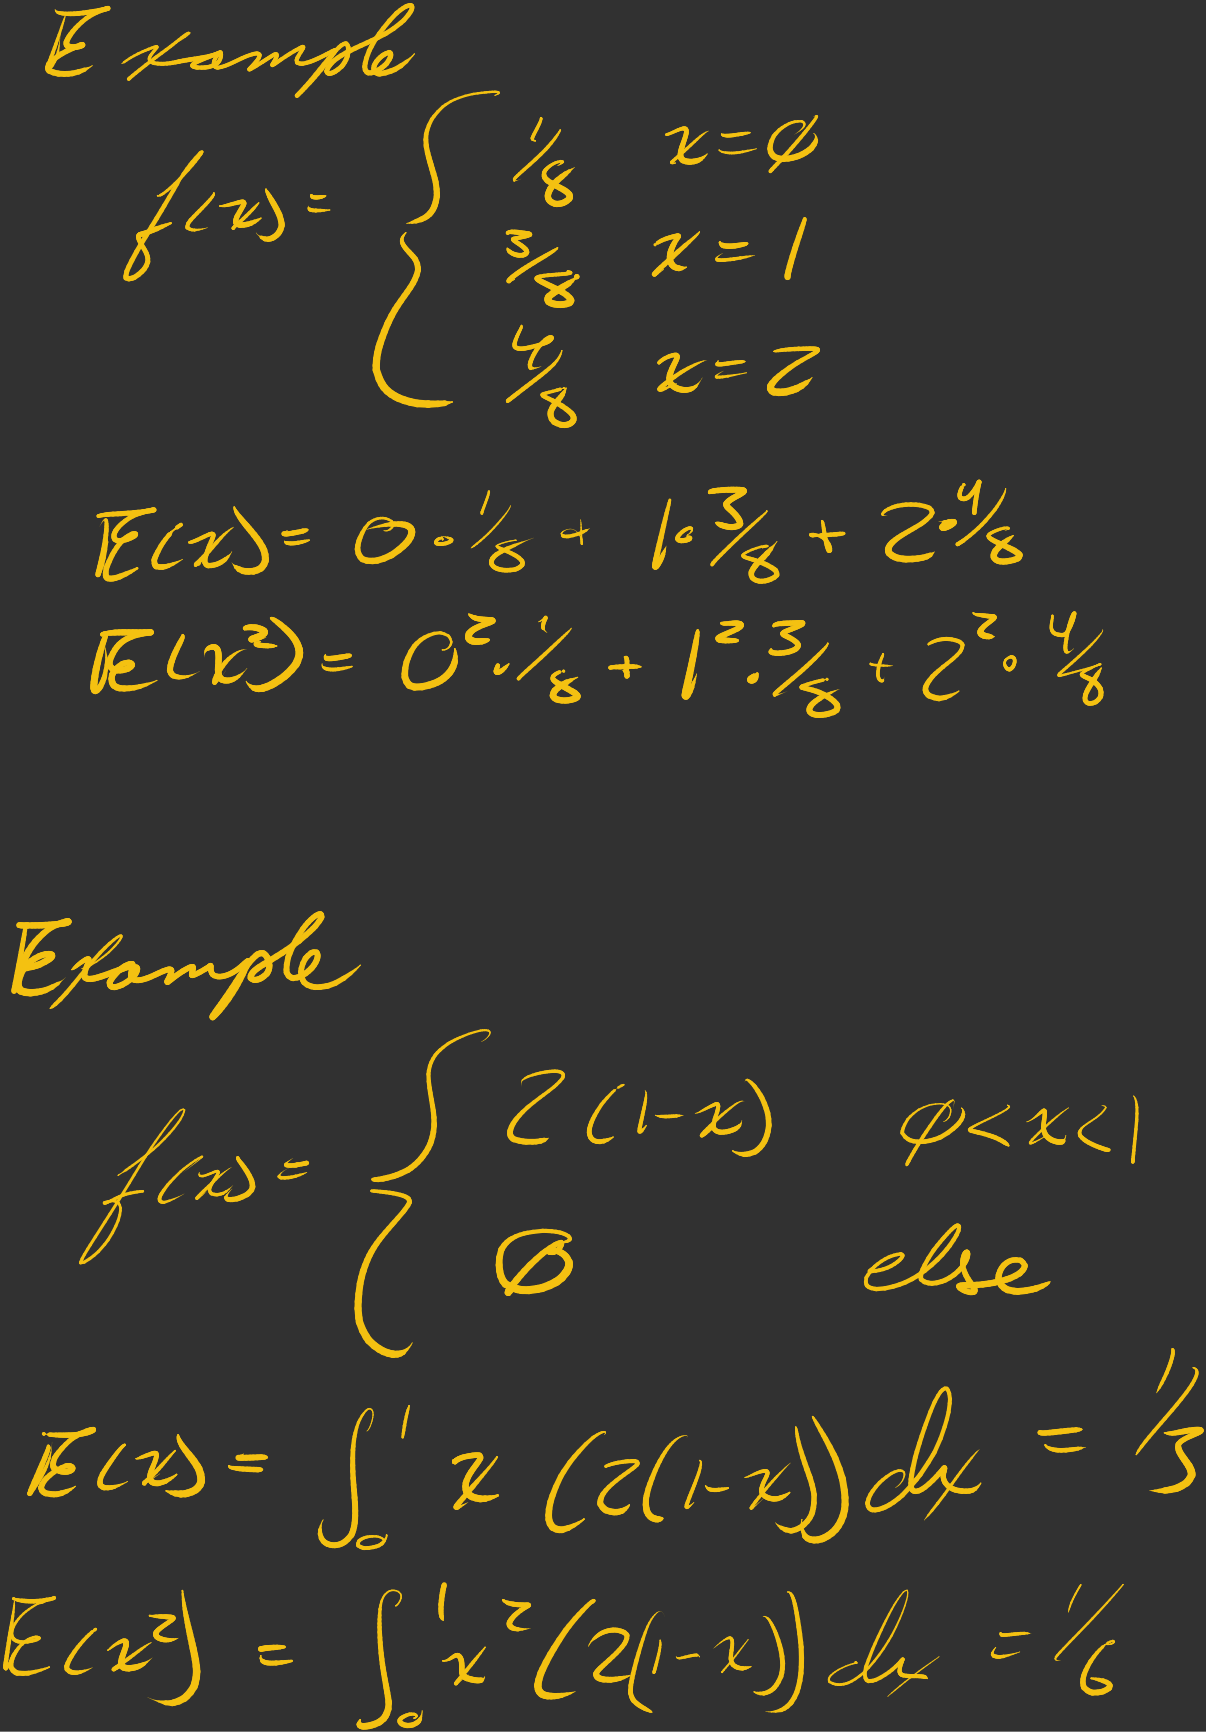 Example
f(x) = { 1/8 x = 0
3/8 x = 1
4/8 x = 2
E(x) = 0 · 1/8 + 1 · 3/8 + 2 · 4/8
E(x²) = 0² · 1/8 + 1² · 3/8 + 2² · 4/8
Example
f(x) = { 2(1-x) 0 < x < 1
0 else
E(x) = ∫₀¹ x (2(1-x)) dx = 1/3
E(x²) = ∫₀¹ x² (2(1-x)) dx = 1/6